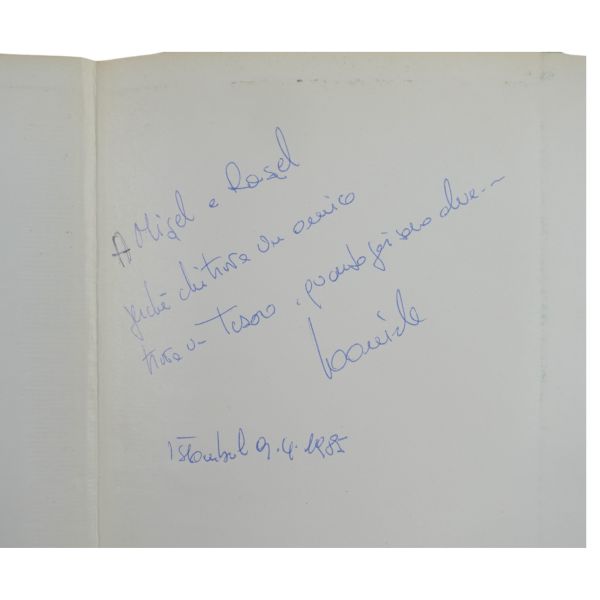 A Mişel e Raşel
perché chi trova un amico
trova un Tesoro, quando poi sono due...
Istanbul 9.4.1985